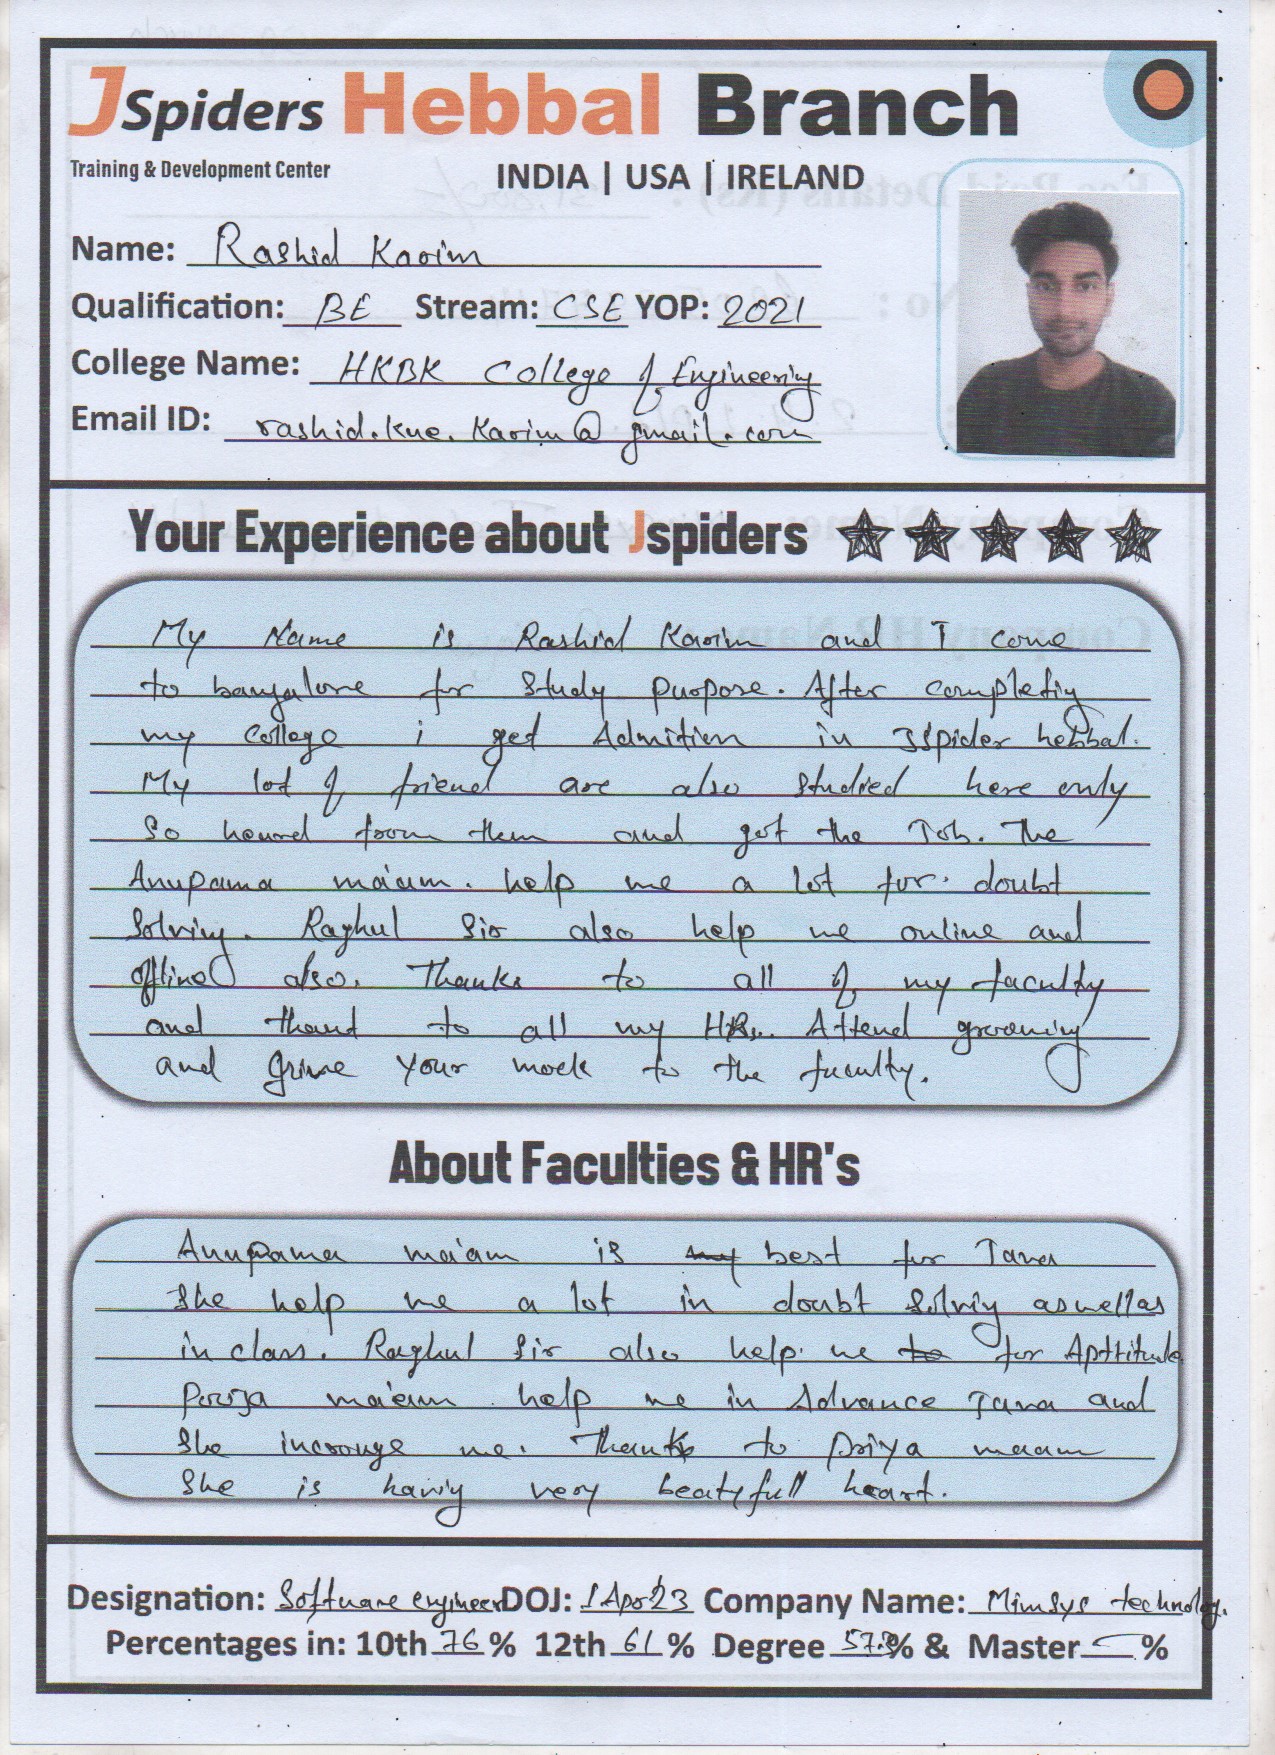 JSpiders Hebbal Branch
Training & Development Center
INDIA | USA | IRELAND
Name: Rashid Karim
Qualification: BE Stream: CSE YOP: 2021
College Name: HKBK College of Engineering
Email ID: rashid.kne.karim@gmail.com
Your Experience about Jspiders
My Name is Rashid Karim and I come
to bangalore for study purpose. After completing
my college i get Admition in JSpider hebbal.
My lot of friend are also studied here only
So heared from them and got the Job. The
Anupama ma'am. help me a lot for. doubt
solving. Raghul Sir also help me online and
offline also. Thanks to all of my faculty
and to all my HRs. Attend grooming
and your mock to the faculty.
About Faculties & HR's
Anupama ma'am is best for Java
She help me a lot in doubt solving aswellas
in class. Raghul Sir also help me for Apttitude
Pooja ma'am help me in Advance Java and
She me. Thanks to priya maam
She is having very beatyfull heart.
Designation: Software engineer DOJ: 1 Apr 23 Company Name: Mimsys technology.
Percentages in: 10th 76 % 12th 61 % Degree % & Master - %